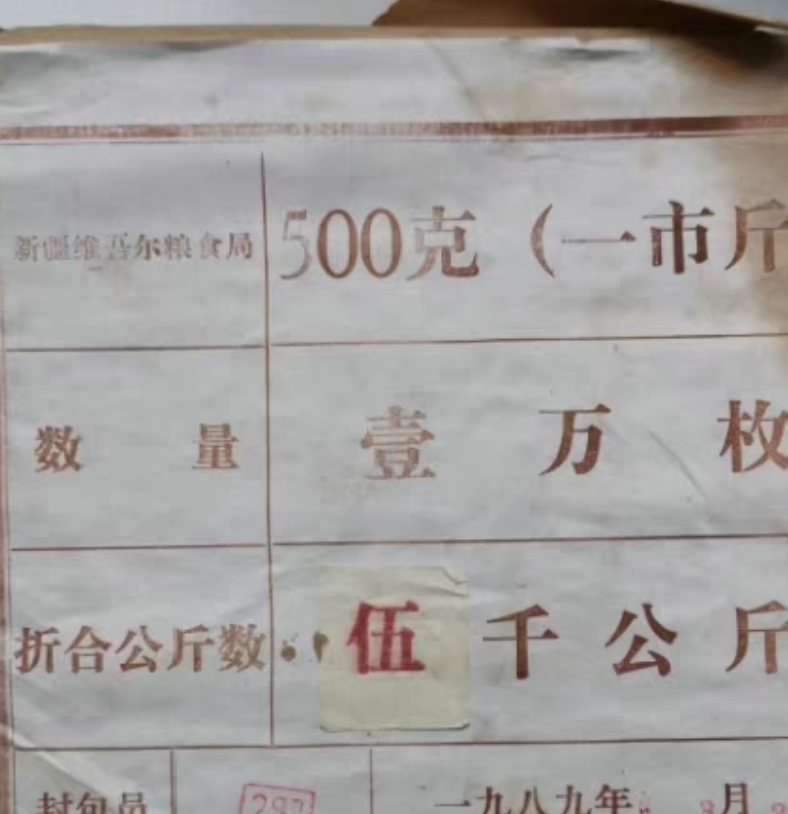 新疆维吾尔粮食局 500克（一市斤
数量 壹万枚
折合公斤数 伍千公斤
封包员 297 一九八九年 3月